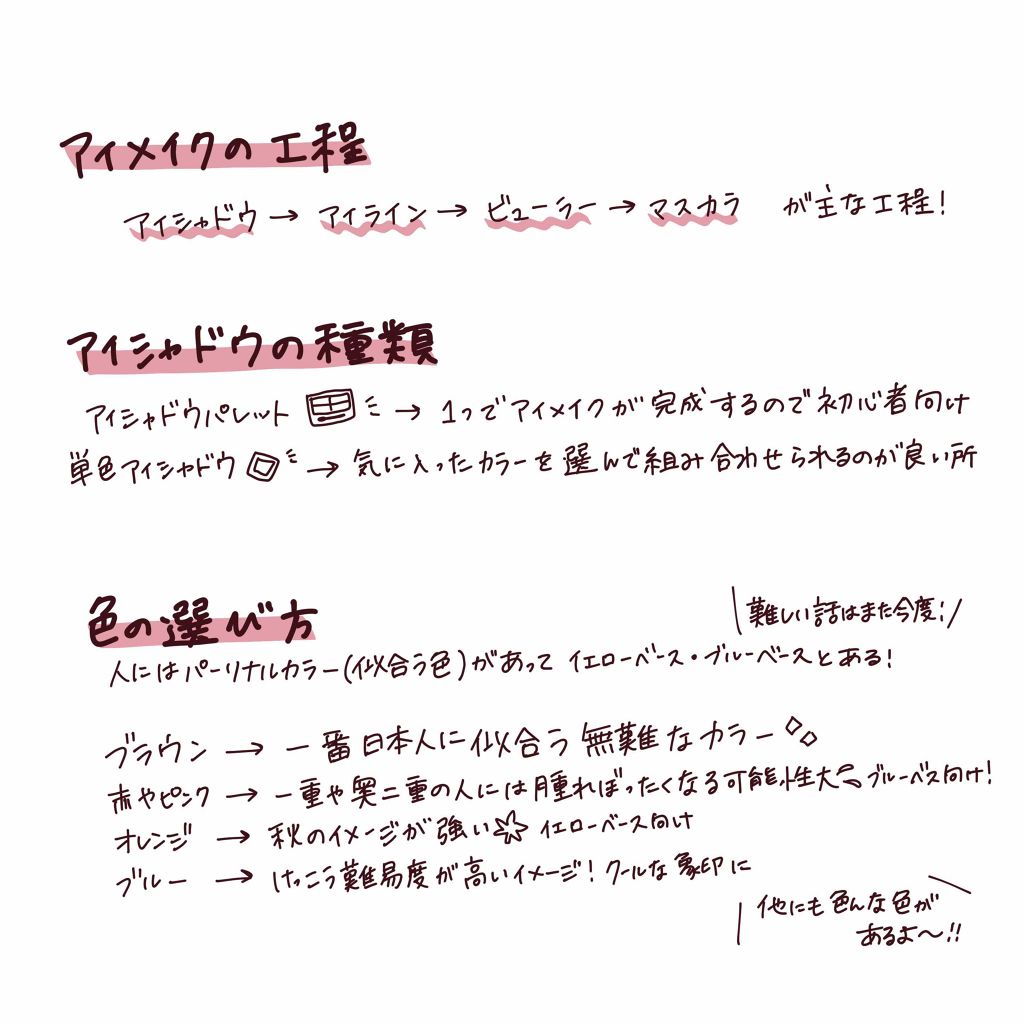 アイメイクの工程
アイシャドウ → アイライン → ビューラー → マスカラ が主な工程!
アイシャドウの種類
アイシャドウパレット → 1つでアイメイクが完成するので初心者向け
単色アイシャドウ → 気に入ったカラーを選んで組み合わせられるのが良い所
色の選び方
難しい話はまた今度!
人にはパーソナルカラー(似合う色)があって イエローベース・ブルーベースとある!
ブラウン → 一番日本人に似合う無難なカラー
赤やピンク → 一重や奥二重の人には腫ればったくなる可能性大 ブルーベース向け!
オレンジ → 秋のイメージが強い☆ イエローベース向け
ブルー → けっこう難易度が高いイメージ! クールな象印に
他にも色んな色が
あるよ〜!!